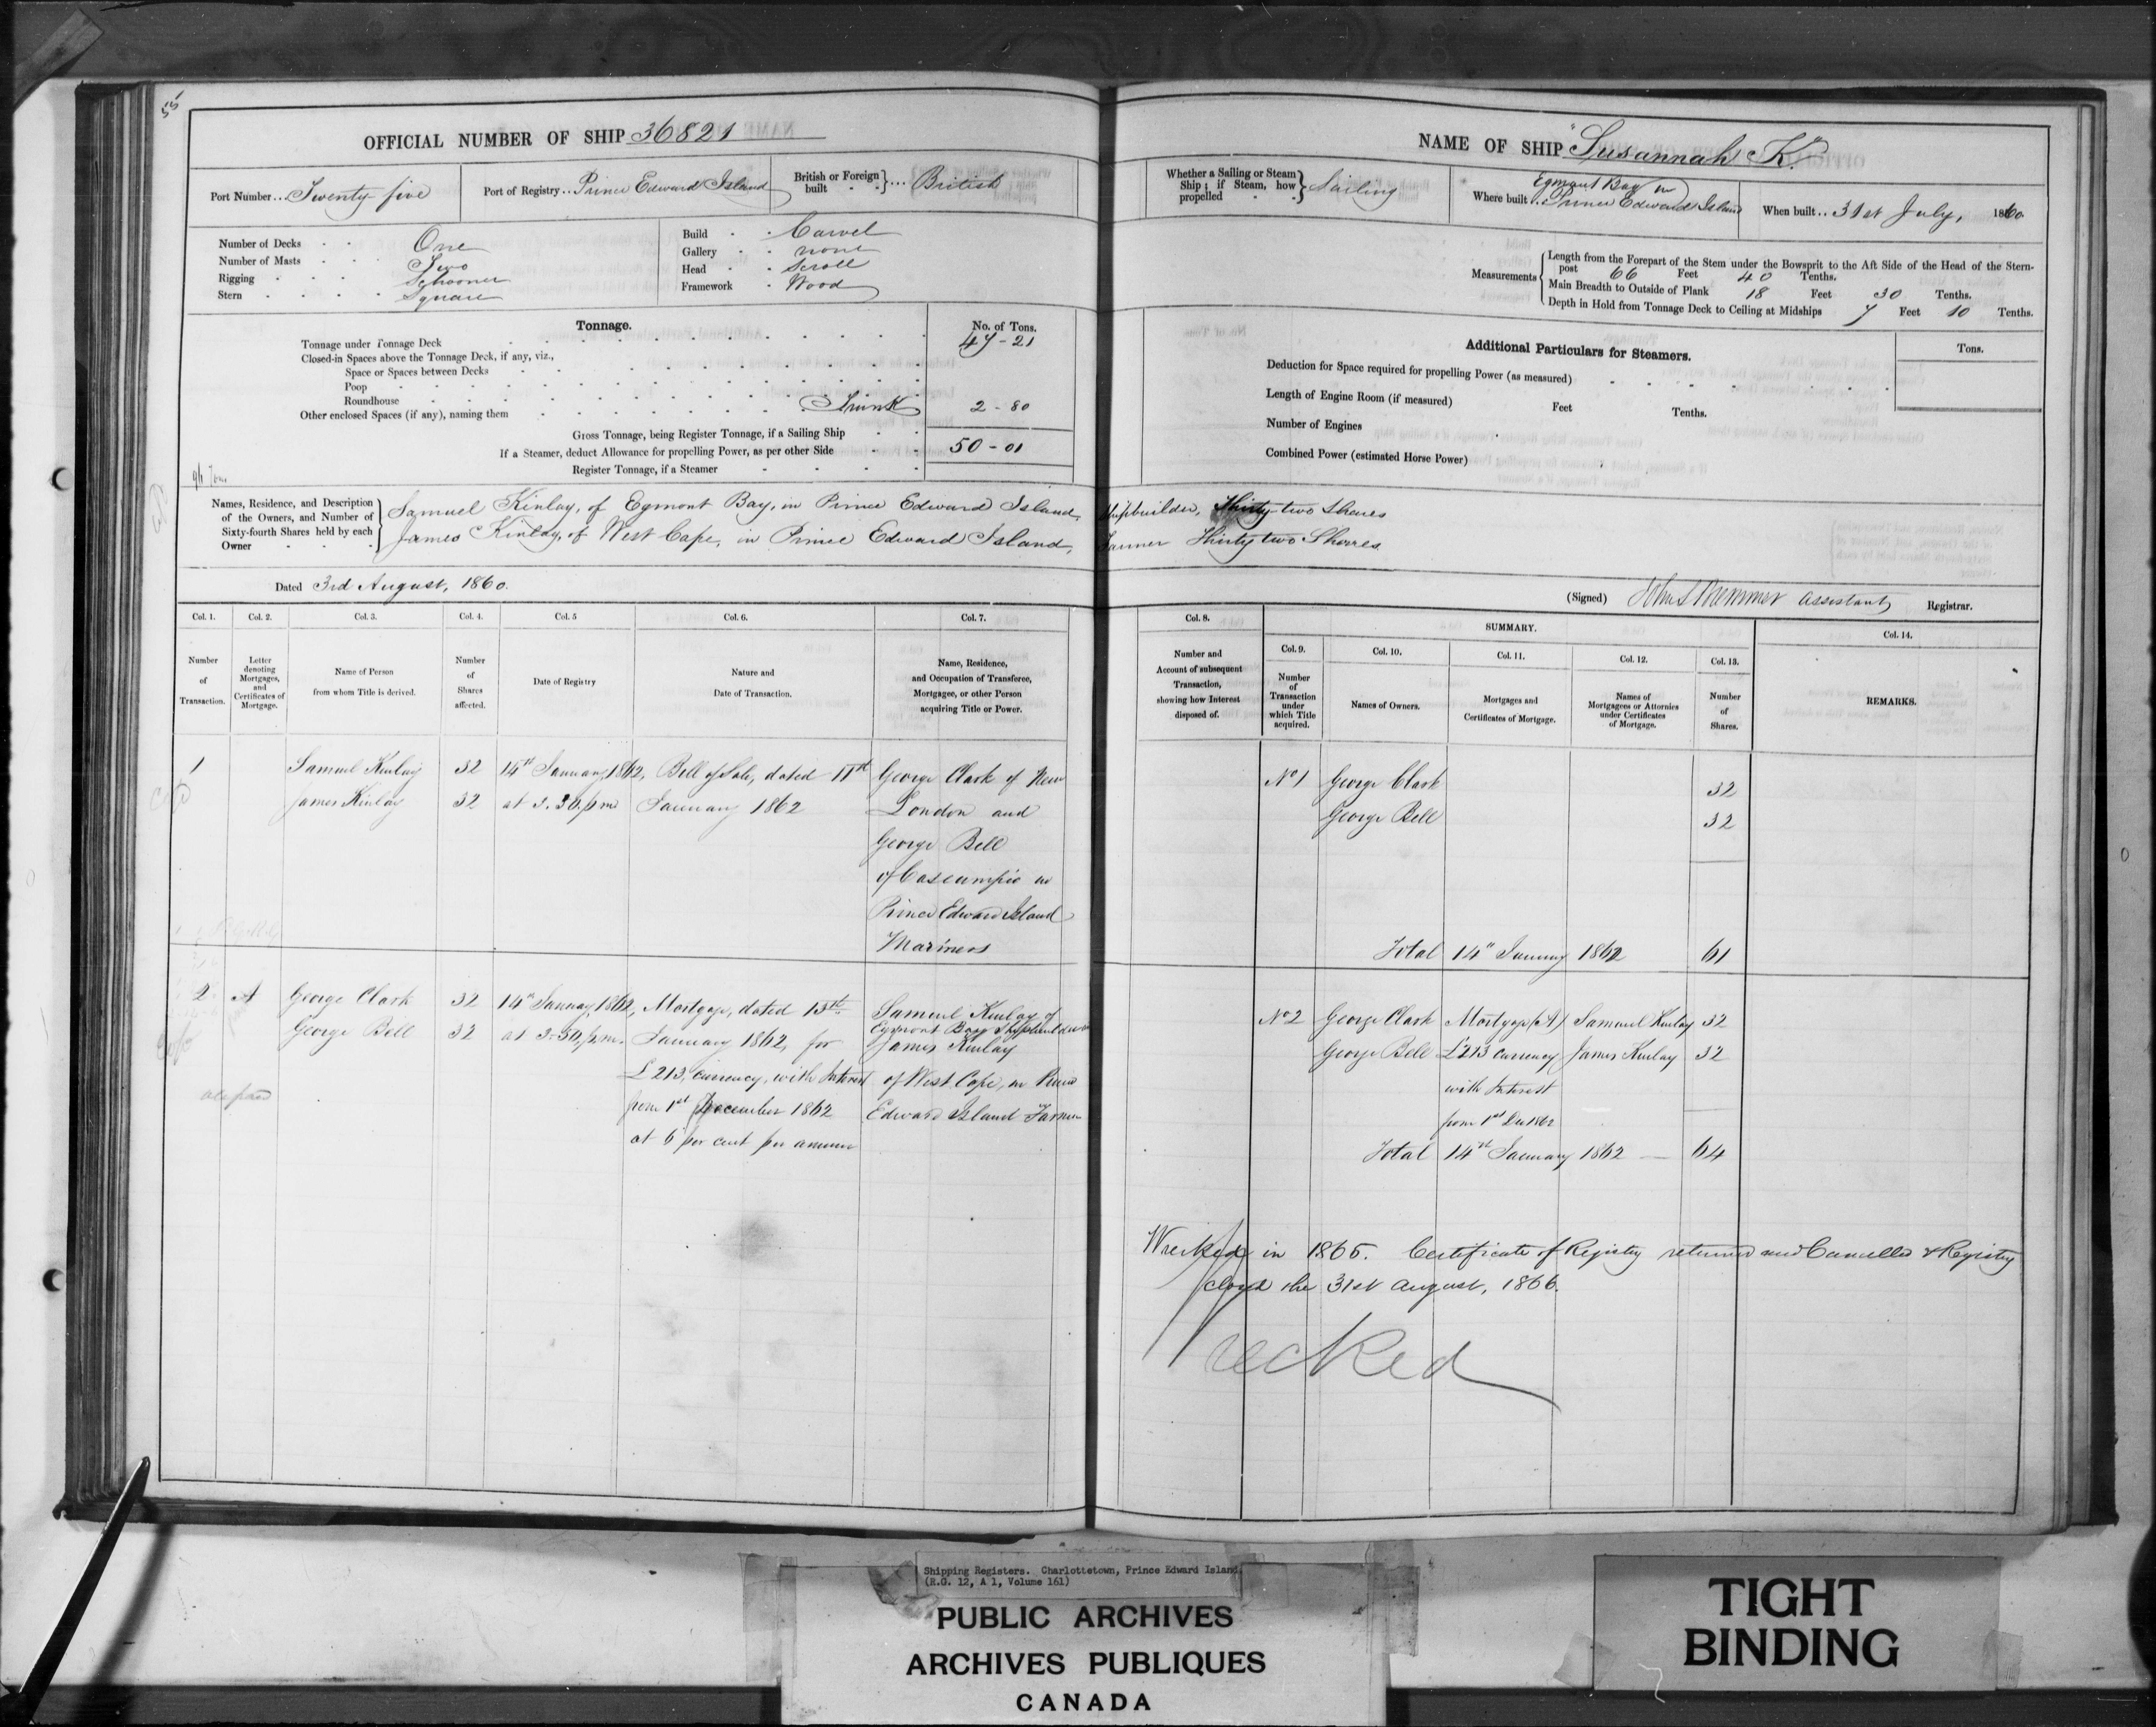 OFFICIAL NUMBER OF SHIP 36821
Port Number .. Twenty five
Port of Registry .. Prince Edward Island
British or Foreign built British
Number of Decks One
Number of Masts Two
Rigging Schooner
Stern Square
Build Carvel
Gallery none
Head Scroll
Framework Wood
Tonnage.
No. of Tons.
Tonnage under Tonnage Deck 47-21
Closed-in Spaces above the Tonnage Deck, if any, viz.,
Space or Spaces between Decks
Poop
Roundhouse
Other enclosed Spaces (if any), naming them Trunk 2-80
Gross Tonnage, being Register Tonnage, if a Sailing Ship
If a Steamer, deduct Allowance for propelling Power, as per other Side 50-01
Register Tonnage, if a Steamer
NAME OF SHIP "Susannah K."
Whether a Sailing or Steam Ship; if Steam, how propelled Sailing
Where built .. Egmont Bay in Prince Edward Island
When built .. 31st July, 1860
Measurements
Length from the Forepart of the Stem under the Bowsprit to the Aft Side of the Head of the Stern-
post 66 Feet 40 Tenths.
Main Breadth to Outside of Plank 18 Feet 30 Tenths.
Depth in Hold from Tonnage Deck to Ceiling at Midships 7 Feet 10 Tenths.
Additional Particulars for Steamers.
Tons.
Deduction for Space required for propelling Power (as measured)
Length of Engine Room (if measured) Feet Tenths.
Number of Engines
Combined Power (estimated Horse Power)
Names, Residence, and Description
of the Owners, and Number of
Sixty-fourth Shares held by each
Owner
Samuel Kinlay, of Egmont Bay, in Prince Edward Island, Shipbuilder, Thirty-two Shares
James Kinlay, of West Cape, in Prince Edward Island, Farmer Thirty two Shares
Dated 3rd August, 1860.
(Signed) Assistant Registrar.
Col. 1.
Number
of
Transaction.
Col. 2.
Letter
denoting
Mortgages,
and
Certificates of
Mortgage.
Col. 3.
Name of Person
from whom Title is derived.
Col. 4.
Number
of
Shares
affected.
Col. 5
Date of Registry
Col. 6.
Nature and
Date of Transaction.
Col. 7.
Name, Residence,
and Occupation of Transferee,
Mortgagee, or other Person
acquiring Title or Power.
Col. 8.
Number and
Account of subsequent
Transaction,
showing how Interest
disposed of.
SUMMARY.
Col. 9.
Number
of
Transaction
under
which Title
acquired.
Col. 10.
Names of Owners.
Col. 11.
Mortgages and
Certificates of Mortgage.
Col. 12.
Names of
Mortgagees or Attornies
under Certificates
of Mortgage.
Col. 13.
Number
of
Shares.
Col. 14.
REMARKS.
1 Samuel Kinlay 32 14th January, 1862, Bill of Sale, dated 11th George Clark of New
James Kinlay 32 at 3.30. p.m January 1862 London and
George Bell
of Cascumpic in
Prince Edward Island
Mariners
No 1 George Clark 32
George Bell 32
Total 14th January 1862 61
2 A George Clark 32 14th January, 1862, Mortgage, dated 13th Samuel Kinlay of
Egmont Bay Shipbuilder
George Bell 32 at 3.30, p.m. January 1862, for James Kinlay
£213, currency, with Interest of West Cape, in Prince
from 1st December 1862 Edward Island Farmer
at 6 per cent per annum
No 2 George Clark Mortgage (A) Samuel Kinlay 32
George Bell £213 currency James Kinlay 32
with Interest
from 1st Dec 1862
Total 14th January 1862 — 64
Wrecked in 1865. Certificate of Registry returned and Cancelled & Registry
closed the 31st August, 1866.
Wrecked
Shipping Registers. Charlottetown, Prince Edward Island.
(R.G. 12, A 1, Volume 161)
PUBLIC ARCHIVES
ARCHIVES PUBLIQUES
CANADA
TIGHT
BINDING